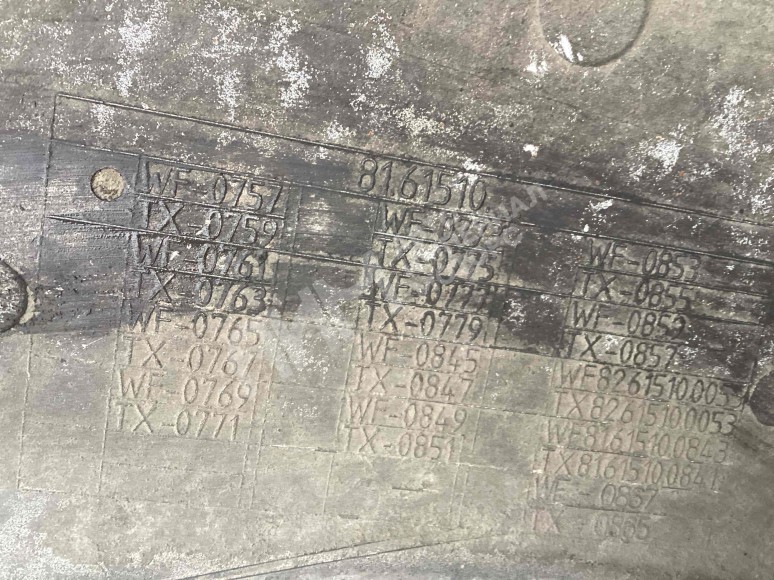 81.61510
WF-0757
TX-0759
WF-0761
TX-0763
WF-0765
TX-0767
WF-0769
TX-0771
WF-0773
TX-0775
WF-0777
TX-0779
WF-0845
TX-0847
WF-0849
TX-0851
WF-0853
TX-0855
WF-0859
TX-0857
WF8261510.0053
TX8261510.0053
WF8161510.0843
TX8161510.0841
WF-0867
TX-0865